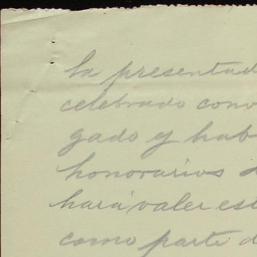 ha presentad
celebrado conv
gado y hab
honorarios d
hará valer est
como parte d